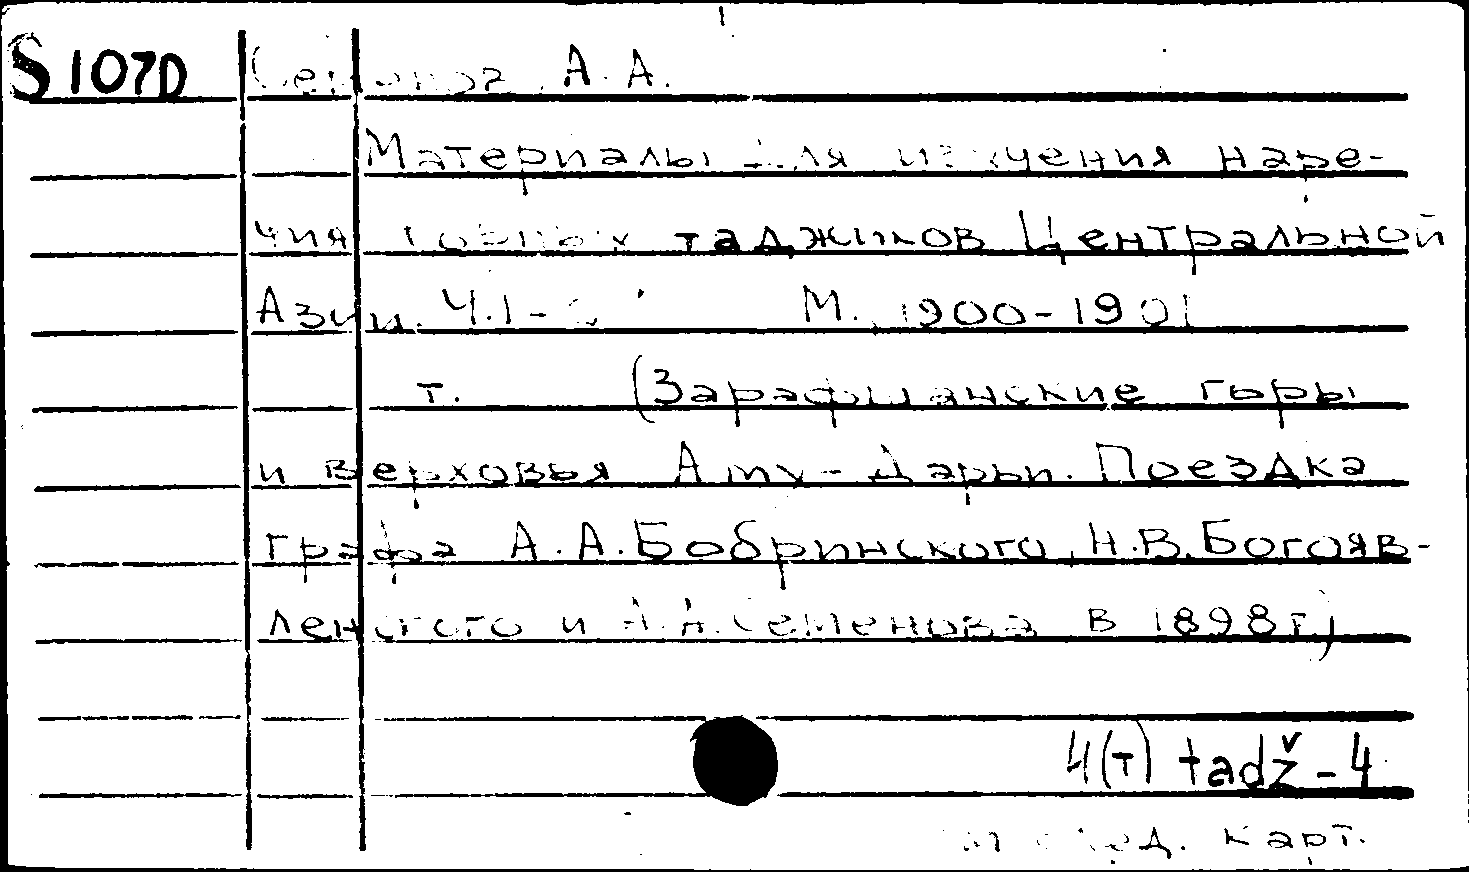 S 107D Семенов, А.А.
Материалы для изучения наре-
чия горных таджиков Центральной
Азии. Ч.1-2 М., 1900-1901
т. (Зарафшанские горы
и верховья Аму-Дарьи. Поездка
графа А.А.Бобринского, Н.В.Богояв-
ленского и А.А.Семенова в 1898г.)
4(т) tadž-4
след. карт.